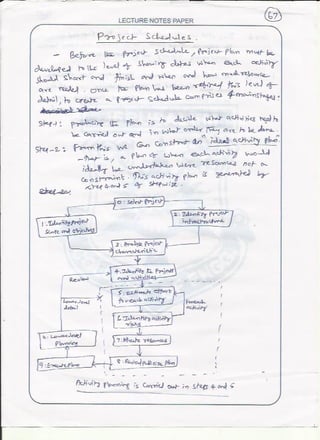 LECTURE NOTES PAPER
67
Project Schedules.
- Before the project schedule, project plan must be
developed to the level of showing dates when each activity
should start and finish and when and how much resource
are needed. once the plan has been refined to this level of
detail, to create a project schedule comprises 4 main stages:
Step-1: producing the plan is to decide what activities need to
be carried out and in what order they are to be done
Step-2: From this we can construct an ideal activity plan
- that is, a plan of when each activity would
ideally be undertaken were resources not a
constraint. This activity plan is generated by
steps 4 and 5 of stepwise.
0: Select Project
1. Identify project scope and objectives
2: Identify project infrastructure
3: Analyse project characteristic
4. Identify the products and activities
Review
5: Estimate effort for each activity
Lower level detail
For each activity
6. Identify activity risks
10. Lower level planning
7: Allocate resources
9: Execute Plan
8: Review/publicise plan
Activity planning is carried out in steps 4 and 5